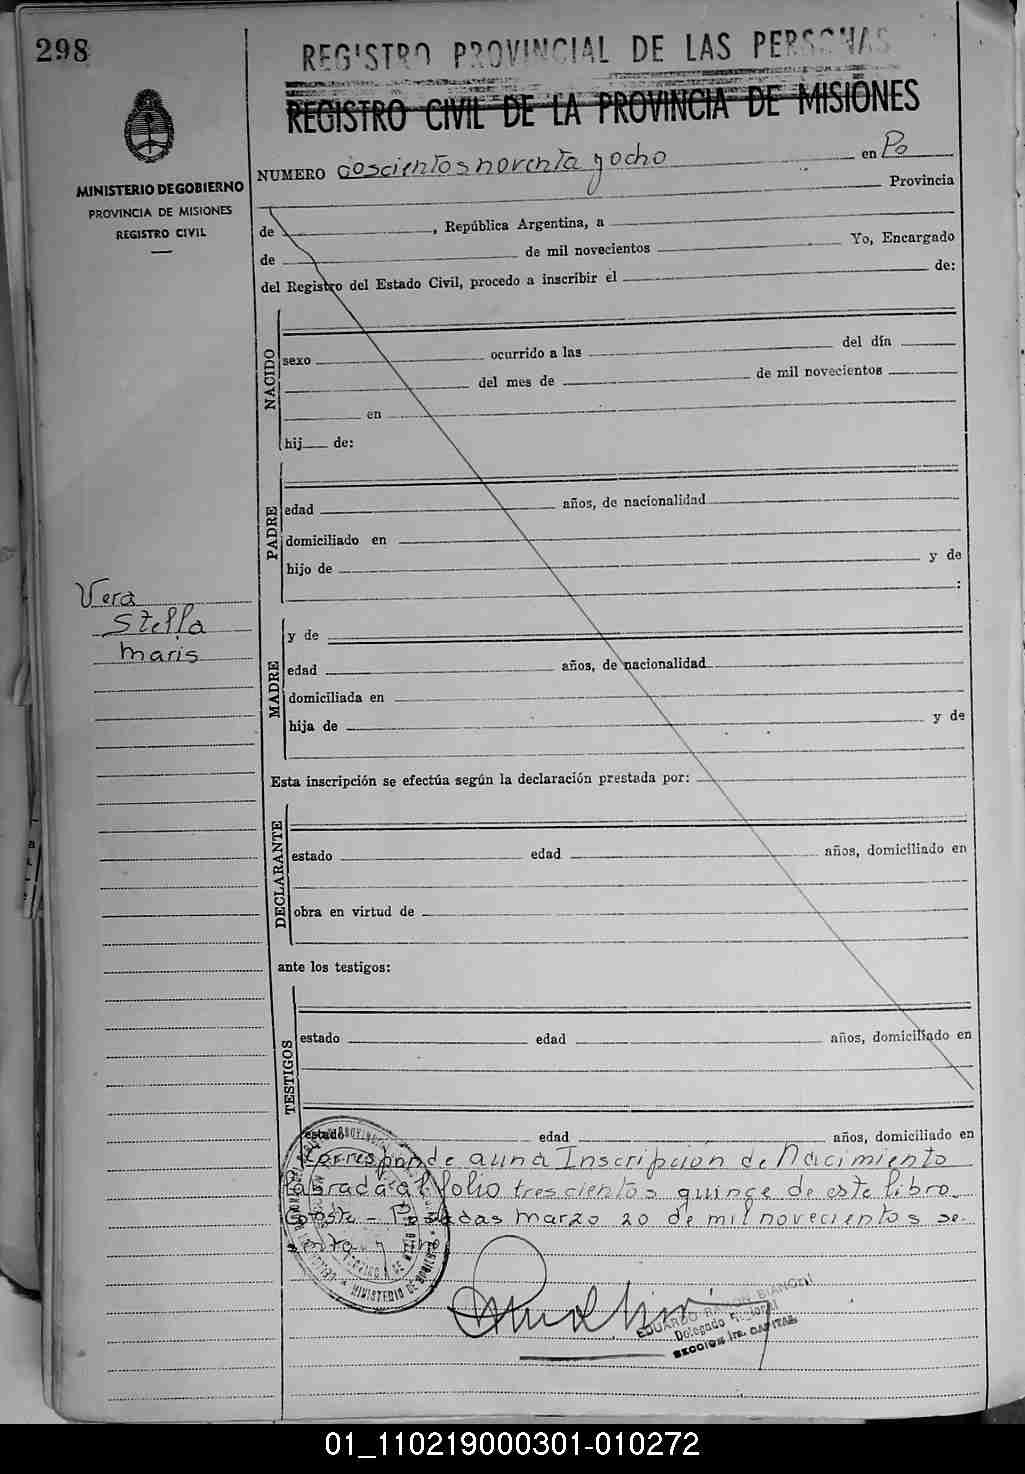 298
REGISTRO PROVINCIAL DE LAS PERSONAS
REGISTRO CIVIL DE LA PROVINCIA DE MISIONES
MINISTERIO DE GOBIERNO
PROVINCIA DE MISIONES
REGISTRO CIVIL
NUMERO doscientos noventa y ocho en Po
Provincia
de , República Argentina, a
de de mil novecientos Yo, Encargado
del Registro del Estado Civil, procedo a inscribir el de:
NACIDO
sexo ocurrido a las del día
del mes de de mil novecientos
en
hij de:
PADRE
edad años, de nacionalidad
domiciliado en
hijo de y de
:
Vera
Stella
Maris
MADRE
y de
edad años, de nacionalidad
domiciliada en
hija de y de
Esta inscripción se efectúa según la declaración prestada por:
DECLARANTE
estado edad años, domiciliado en
obra en virtud de
ante los testigos:
TESTIGOS
estado edad años, domiciliado en
estado edad años, domiciliado en
Corresponde a una Inscripcion de Nacimiento
labrada al folio trescientos quince de este libro
Conste - Posadas Marzo 20 de mil novecientos se
MINISTERIO DE
EDUARDO RAMON BIANCHI
Delegado
SECCION 1ra. CAPITAL
01_110219000301-010272